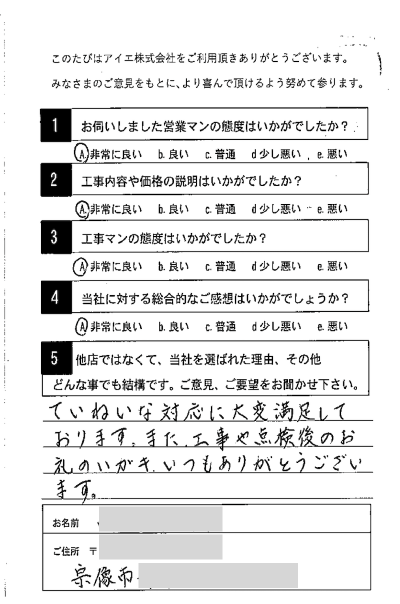 このたびはアイエ株式会社をご利用頂きありがとうございます。
みなさまのご意見をもとに、より喜んで頂けるよう努めて参ります。
1 お伺いしました営業マンの態度はいかがでしたか？
A.非常に良い b.良い c.普通 d少し悪い e.悪い
2 工事内容や価格の説明はいかがでしたか？
A.非常に良い b.良い c.普通 d少し悪い e.悪い
3 工事マンの態度はいかがでしたか？
A.非常に良い b.良い c.普通 d少し悪い e.悪い
4 当社に対する総合的なご感想はいかがでしょうか？
A.非常に良い b.良い c.普通 d少し悪い e.悪い
5 他店ではなくて、当社を選ばれた理由、その他
どんな事でも結構です。ご意見、ご要望をお聞かせ下さい。
ていねいな対応に大変満足して
おります。また、工事や点検後のお
礼のハガキ、いつもありがとうござい
ます。
お名前
ご住所 〒
宗像市